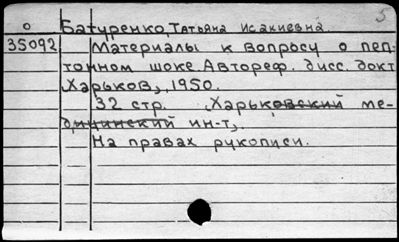 5
О Батуренко, Татьяна Исакиевна.
35092 Материалы к вопросу о пеп-
тонном шоке. Автореф. дисс. докт
Харьков, 1950.
32 стр. Харьковский ме-
дицинский ин-т,.
На правах рукописи.